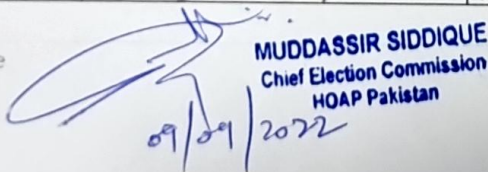 MUDDASSIR SIDDIQUE
Chief Election Commission
HOAP Pakistan
09/09/2022